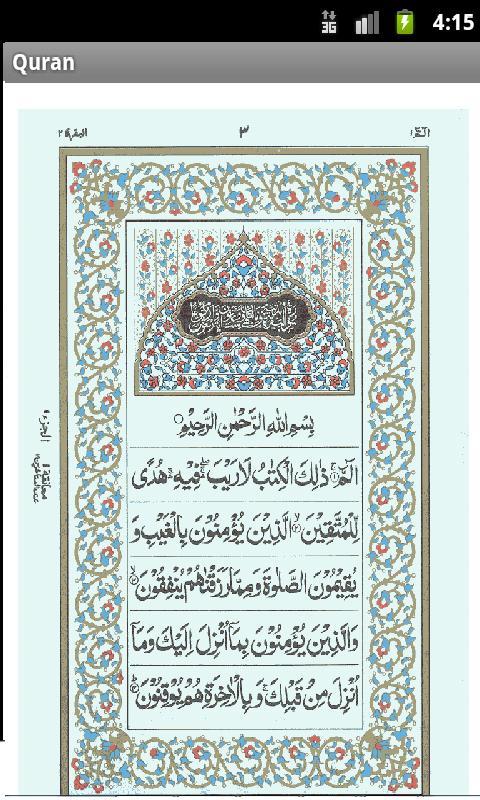 4:15
Quran
البقرة ٢
٣
الٓمّٓ ١
بِسْمِ اللهِ الرَّحْمٰنِ الرَّحِيْمِ
الٓمّٓ ۚ ذٰلِكَ الْكِتٰبُ لَا رَيْبَ ۛ فِيْهِ ۛ هُدًى
لِّلْمُتَّقِيْنَ ۙ الَّذِيْنَ يُؤْمِنُوْنَ بِالْغَيْبِ وَ
يُقِيْمُوْنَ الصَّلٰوةَ وَمِمَّا رَزَقْنٰهُمْ يُنْفِقُوْنَ ۙ
وَالَّذِيْنَ يُؤْمِنُوْنَ بِمَآ اُنْزِلَ اِلَيْكَ وَمَآ
اُنْزِلَ مِنْ قَبْلِكَ ۚ وَبِالْاٰخِرَةِ هُمْ يُوْقِنُوْنَ ؕ